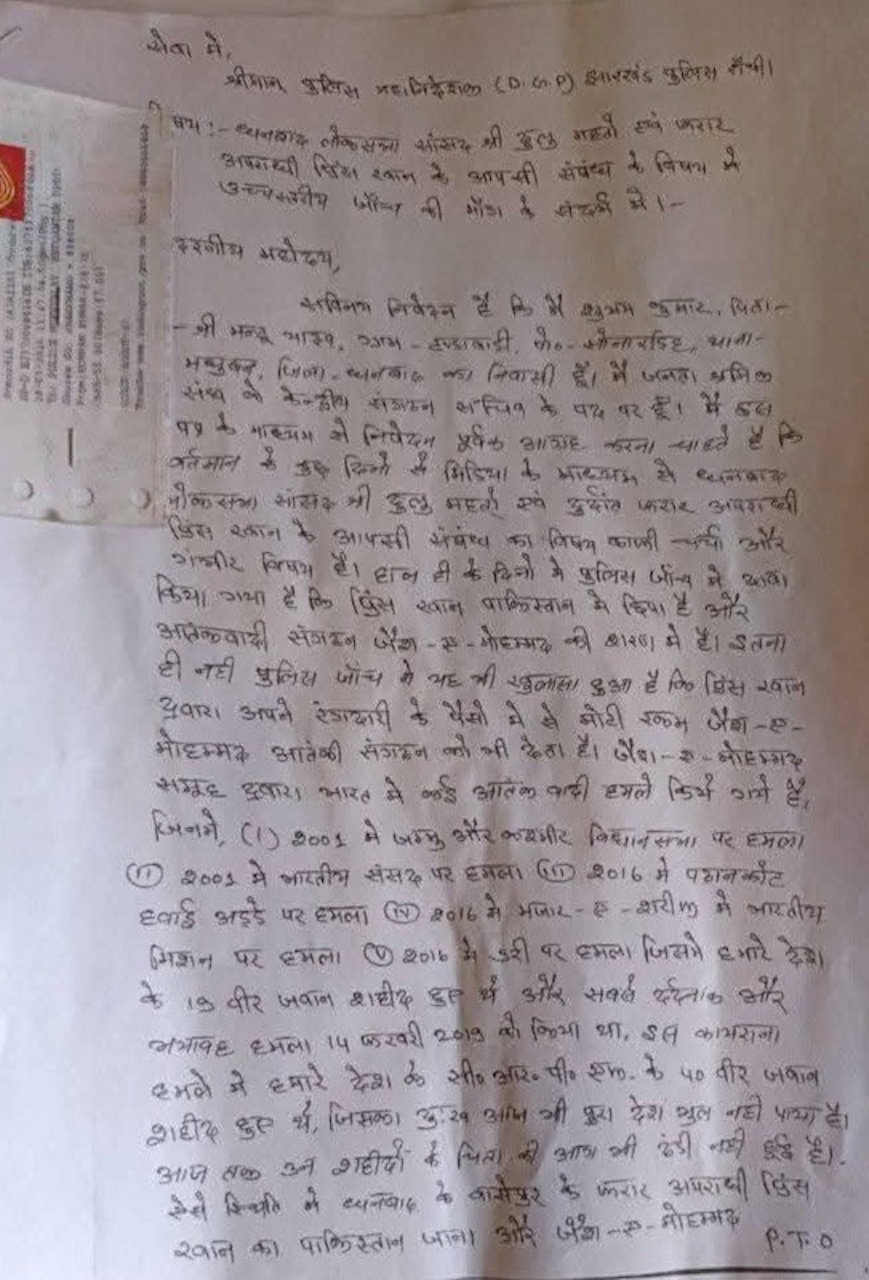 सेवा में,
श्रीमान् पुलिस महानिदेशक (D.G.P) झारखंड पुलिस राँची।
षय :- धनबाद लोकसभा सांसद श्री ढुलु महतो एवं फरार
अपराधी प्रिंस खान के आपसी संबंध के विषय में
उच्चस्तरीय जाँच की माँग के संदर्भ में।-
महोदय,
सविनय निवेदन है कि मैं शुभम कुमार, पिता-
- श्री मन्टू यादव, ग्राम - , पो०- सोनारडिह, थाना-
मधुबन, जिला - धनबाद का निवासी हूँ। मैं जनता श्रमिक
संघ के केन्द्रीय संगठन सचिव के पद पर हूँ। मैं इस
पत्र के माध्यम से निवेदन पूर्वक आग्रह करना चाहते है कि
वर्तमान के कुछ दिनों से मिडिया के माध्यम से धनबाद
लोकसभा सांसद श्री ढुलु महतो एवं दुर्दांत फरार अपराधी
प्रिंस खान के आपसी संबंध का विषय काफी चर्चा और
गंभीर विषय है। हाल ही के दिनों में पुलिस जाँच में दावा
किया गया है कि प्रिंस खान पाकिस्तान में छिपा है और
आतंकवादी संगठन जैश-ए-मोहम्मद की शरण में है। इतना
ही नहीं पुलिस जाँच में यह भी खुलासा हुआ है कि प्रिंस खान
द्वारा अपने रंगदारी के पैसों में से मोटी रकम जैश-ए-
मोहम्मद आतंकी संगठन को भी देता है। जैश-ए-मोहम्मद
समूह द्वारा भारत में कई आतंकवादी हमले किये गये हैं,
जिनमें, (I) 2001 में जम्मु और कश्मीर विधानसभा पर हमला
(II) 2001 में भारतीय संसद पर हमला (III) 2016 में पठानकोट
हवाई अड्डे पर हमला (IV) 2016 में मजार-ए-शरीफ में भारतीय
मिशन पर हमला (V) 2016 में उरी पर हमला जिसमे हमारे देश
के 19 वीर जवान शहीद हुए थे और सबसे दर्दनाक और
भयावह हमला 14 फरवरी 2019 को किया था, इस कायराना
हमले में हमारे देश के सी० आर० पी० एफ. के 40 वीर जवान
शहीद हुए थे, जिसका दु:ख आज भी पुरा देश भुल नहीं पाया है।
आज तक उन शहीदों के चिता की आग भी ठंडी नहीं हुई है।
ऐसे स्थिति में धनबाद के वासेपुर के फरार अपराधी प्रिंस
खान का पाकिस्तान जाना और जैश-ए-मोहम्मद
P.T.O